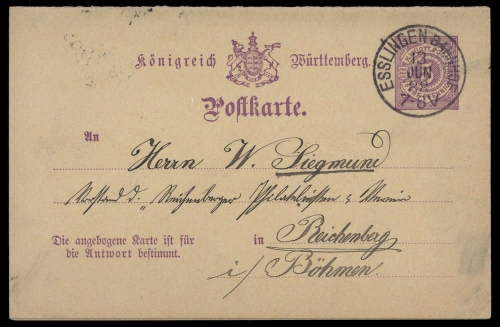 Königreich Württemberg.
ESSLINGEN BAHNHOF
13
JUN
7-8 V
Postkarte.
An
Herrn W. Siegmund
Vorstand d. "Reichenberger Philatelisten-Verein
Die angebogene Karte ist für
die Antwort bestimmt.
in Reichenberg
i/ Böhmen.